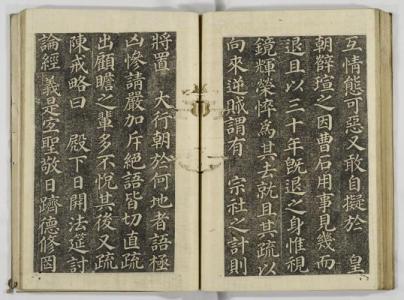 互情態可惡又敢自擬於 皇
朝辥瑄之因曹石用事見幾而
退且以三十年旣退之身惟視
鏡輝榮悴為其去就且其疏以
向來逆賊謂有 宗社之計則
將置 大行朝於何地者語極
凶慘請嚴加斥絕語皆切直疏
出顧瞻之輩多不悅其後又疏
陳戒略曰 殿下日開法筵討
論經義是宜聖敬日躋德修罔